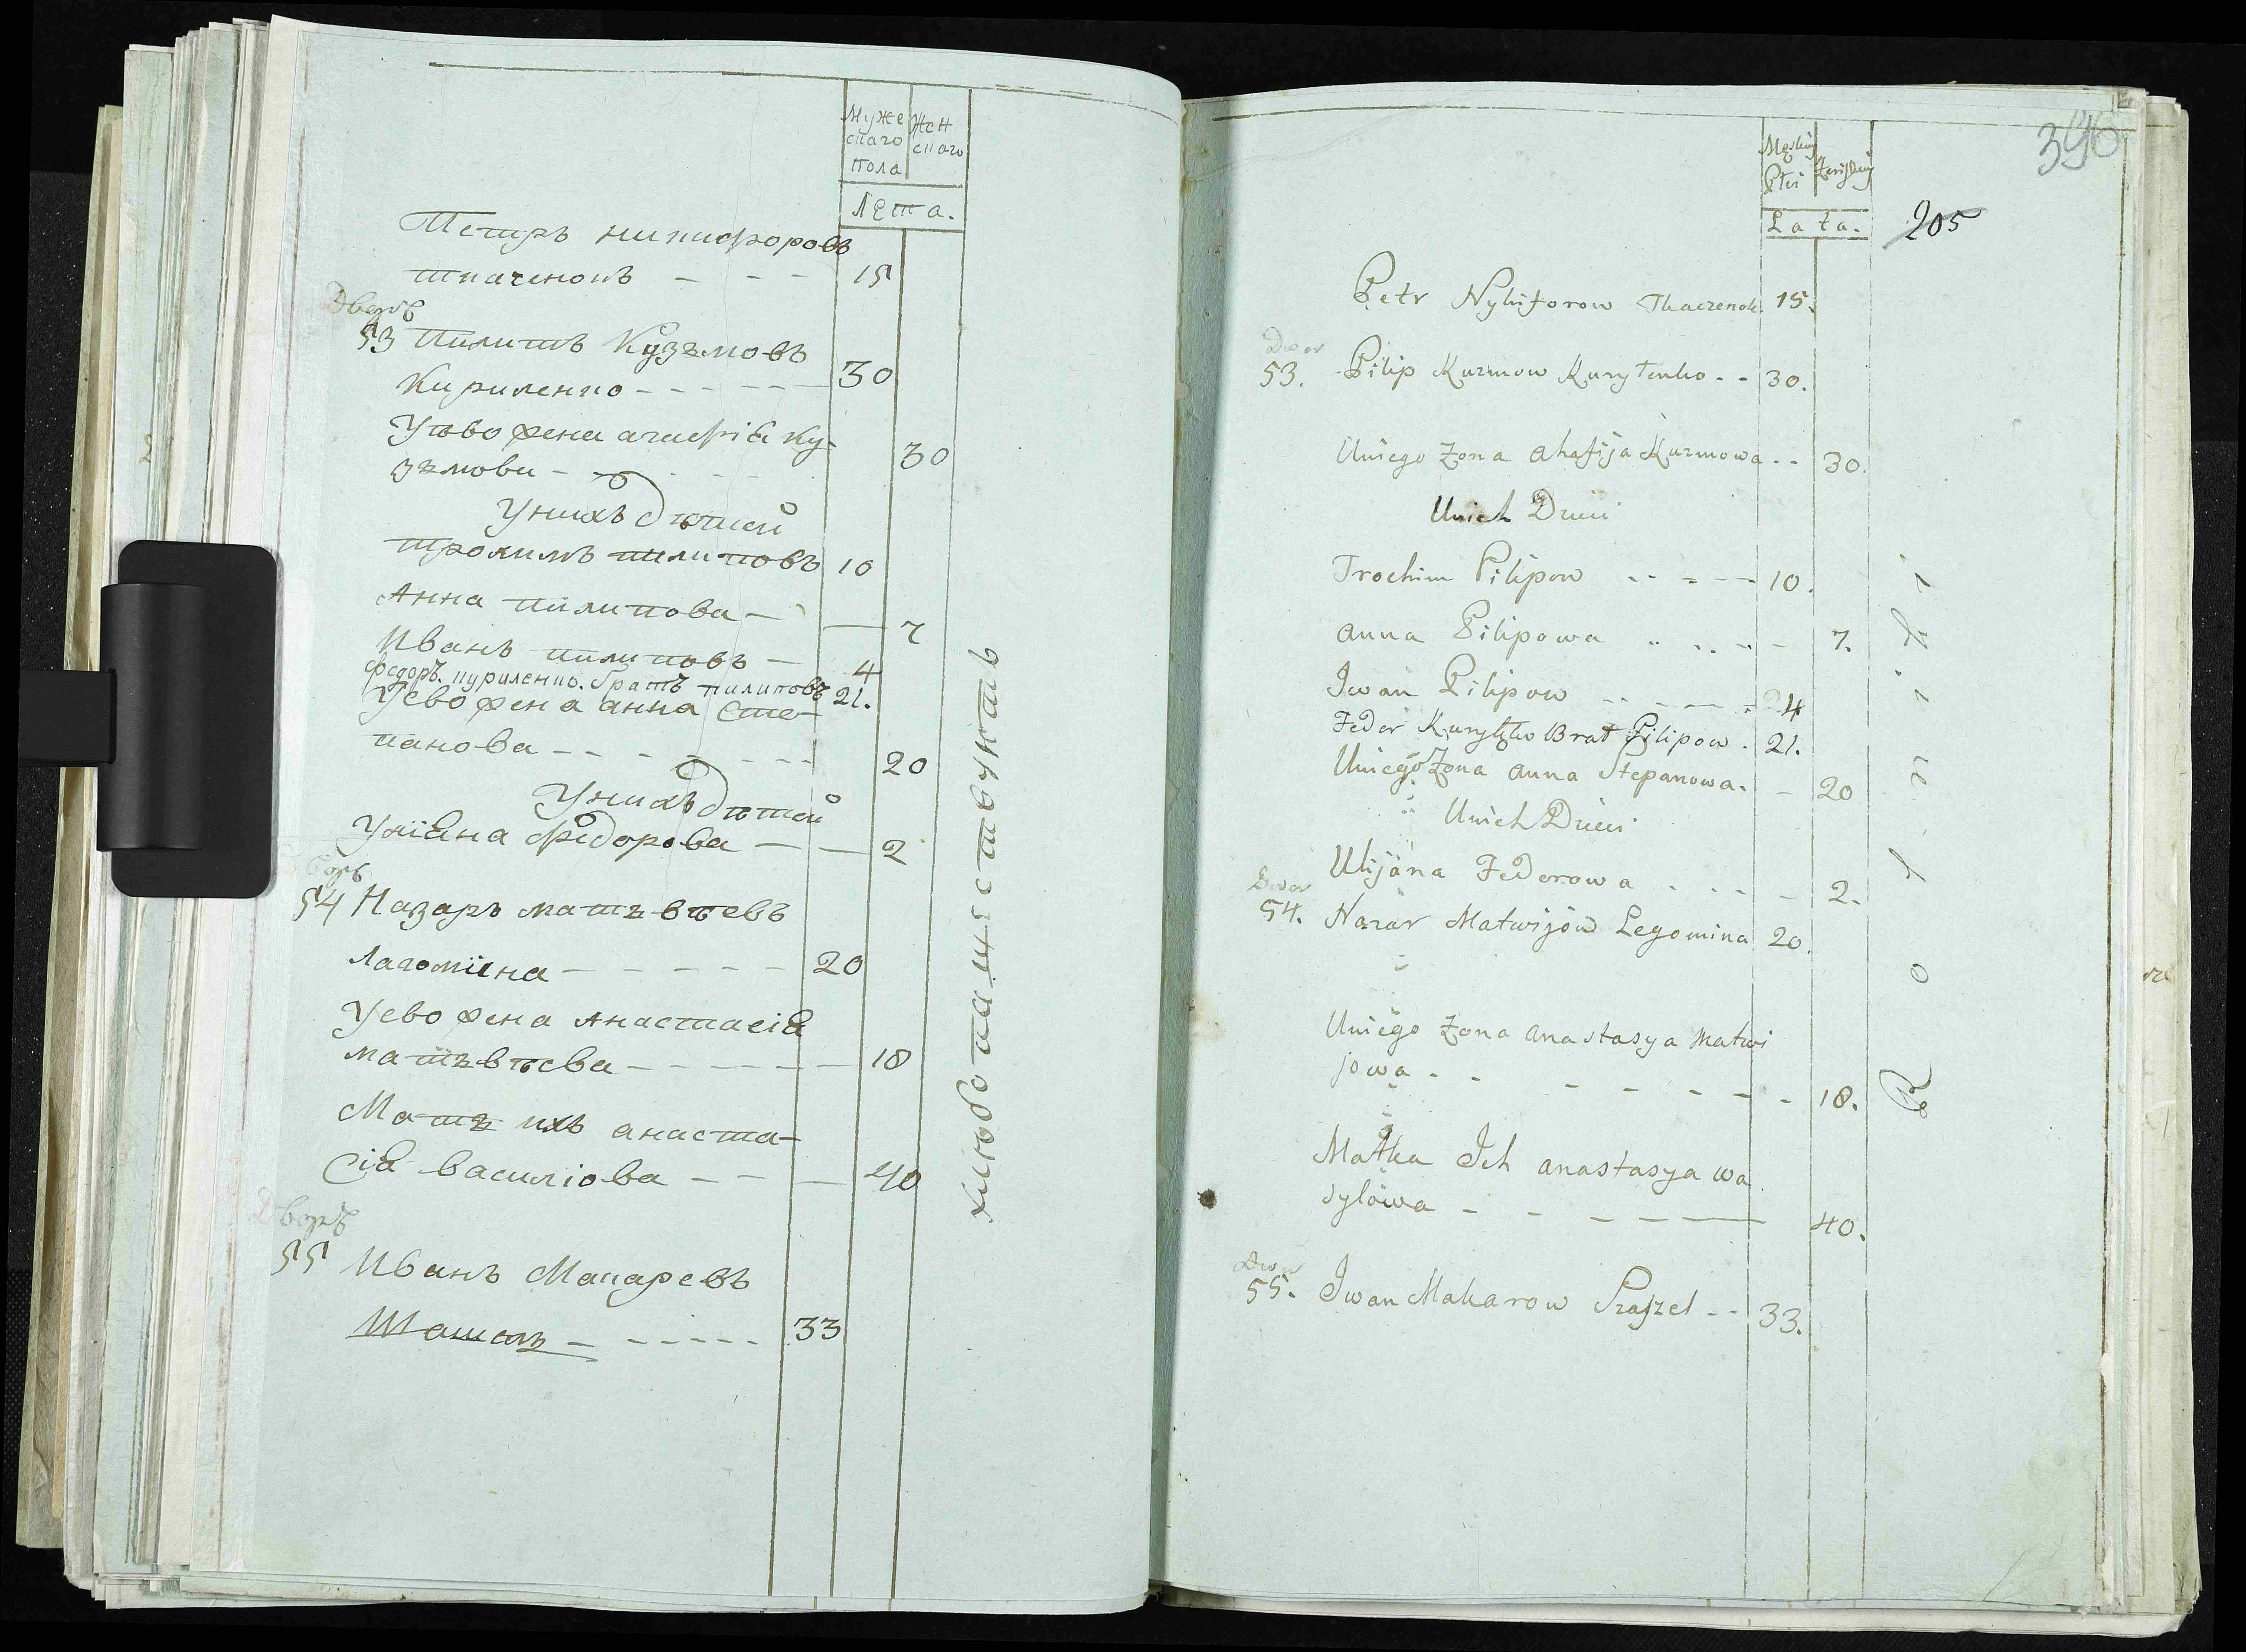 Муже
скаго
пола
Жен
скаго
Лета.
Петръ никифоровъ
ткаченокъ - - - 15
Дворъ
53 Пилипъ Кузьмовъ
Кириленко - - - - - 30
Уево жена агафіа Ку-
зьмова - - - - 30
Унихъ дѣтей
трохимъ пилиповъ 10
Анна пилипова - 7
Иванъ пилиповъ - 4
федоръ кириленко. братъ пилиповъ 21.
Уево жена анна Сте-
панова - - - - - - 20
Унихъ дѣтей
Уліана федорова - - 2
Дворъ
54 Назаръ матьвѣевъ
Лагомина - - - - - 20
Уево жена Анастасіа
матьвѣева - - - - - 18
Мать ихъ анаста-
сіа василіова - - - 40
Дворъ
55 Иванъ Макаревъ
Шашель - - - - - - 33
хлѣбопашествуютъ
396
Męskiej
Płci
Żeńskiej
Lata.
205
Petr Nykiforow Tkaczenok 15.
Dwor
53. Pilip Kuzmow Kuryłenko - - 30.
Uniego Żona Ahafija Kuzmowa - - 30.
Unich Dzieci
Trochim Pilipow - - - - - 10.
Anna Pilipowa - - - - - 7.
Iwan Pilipow - - - - - 4
Feder Kuryłko Brat Pilipow . 21.
Uniego Żona Anna Stepanowa. - 20
Unich Dzieci
Ulijana Federowa . - - - 2.
Dwor
54. Nazar Matwijow Legomina 20.
Uniego Żona Anastasya Matwi
jowa - - - - - - - - 18.
Matka Ich Anastasya Wa
sylowa - - - - - 40.
Dwor
55. Iwan Makarow Szaszel - - 33.
Rolniki